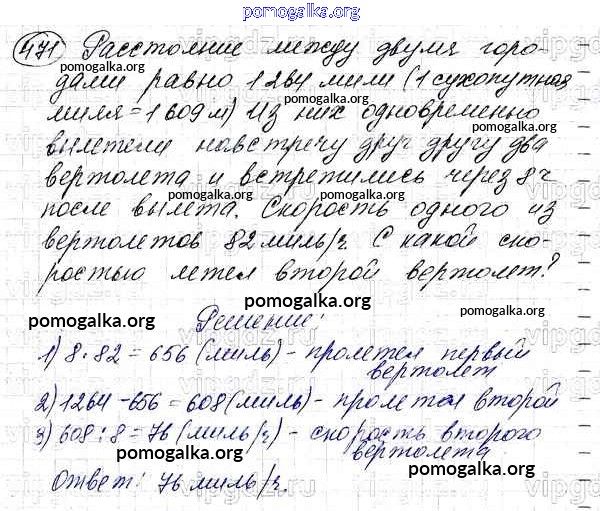 pomogalka.org
471 Расстояние между двумя горо-
pomogalka.org
дами равно 1264 мили (1 сухопутная
pomogalka.org
миля = 1609 м) Из них одновременно
pomogalka.org
вылетели навстречу друг другу два
pomogalka.org
вертолета и встретились через 8 ч
pomogalka.org
после вылета. Скорость одного из
вертолетов 82 миль/ч. С какой ско-
pomogalka.org
ростью летел второй вертолет?
pomogalka.org pomogalka.org
Решение:
pomogalka.org
1) 8 · 82 = 656 (миль) - пролетел первый
вертолет
2) 1264 - 656 = 608 (миль) - пролетел второй
3) 608 : 8 = 76 (миль/ч) - скорость второго
вертолета
pomogalka.org
Ответ: 76 миль/ч.
pomogalka.org
vipgdz.ru